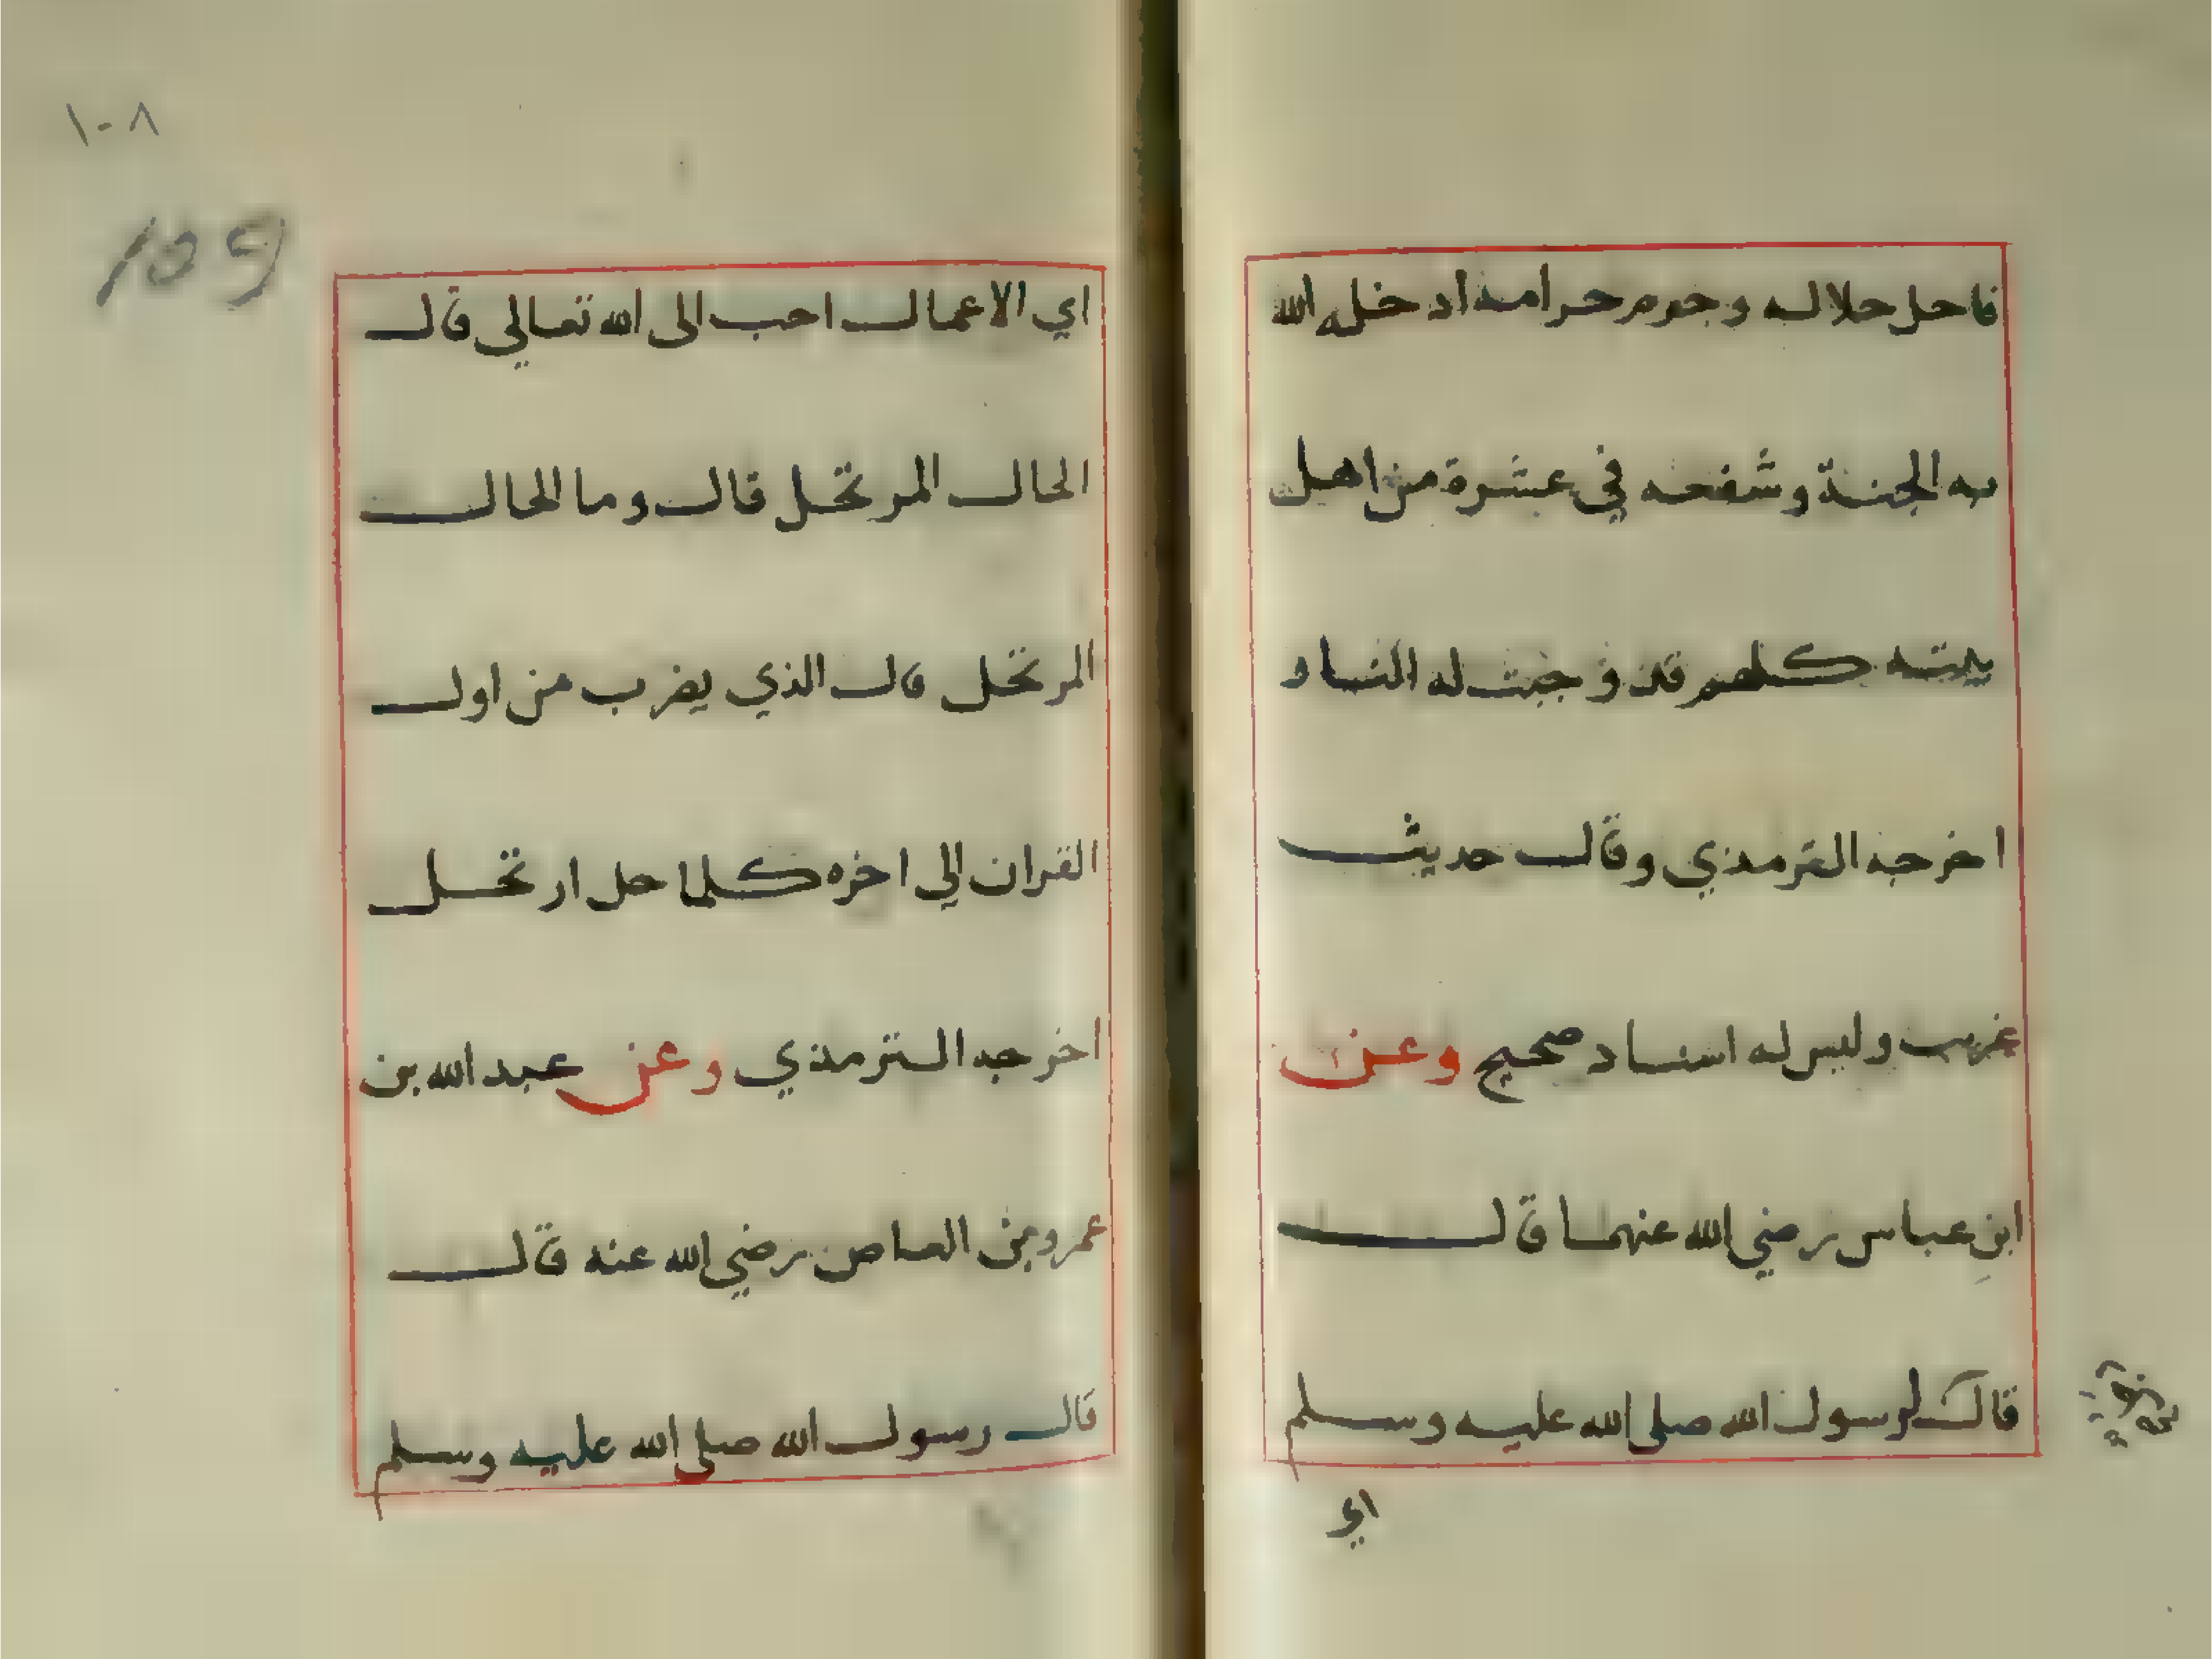 فاحل حلاله وحرم حرامه ادخله الله
به الجنة وشفعه في عشرة من اهل
بيته كلهم قد وجبت له النار
اخرجه الترمذي وقال حديث
غريب وليس له اسناد صحيح وعن
ابن عباس رضي الله عنهما قال
قال رسول الله صلى الله عليه وسلم
اي
١٠٨
109
اي الاعمال احب الى الله تعالي قال
الحال المرتحل قال وما الحال
المرتحل قال الذي يضرب من اول
القران الي اخره كلما حل ارتحل
اخرجه الترمذي وعن عبد الله بن
عمرو بن العاص رضي الله عنه قال
قال رسول الله صلى الله عليه وسلم